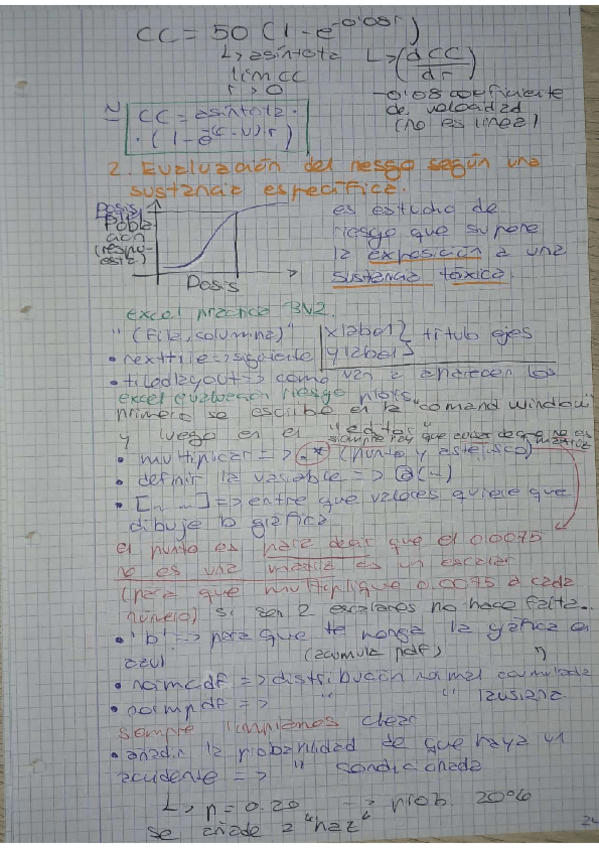 CC = 50 (1 - e^-0'08r)
L> asíntota L> (dCC/dr)
lim CC
r -> 0
-0'08 coeficiente
de velocidad
(no es lineal)
≃ CC = asíntota ·
· (1 - e^(-v)·r)
2. Evaluación del riesgo según una
sustancia específica.
Pobla
ación
(respu-
esta)
Dosis
es estudio de
riesgo que supone
la exposición a una
sustancia tóxica.
excel práctica 3V2.
"(fila, columna)" xlabel} título ejes
ylabel}
• nexttile => siguiente
• tiledlayout => como van a aparecer los
plots
excel evaluacion riesgo
primero se escribe en la "comand window"
y luego en el "editor"
siempre hay que
• multiplicar => .* (punto y asterisco)
• definir la variable => @(~)
• [~ ~] => entre que valores quiere que
dibuje la gráfica
el punto es para decir que el 0.0075
no es una matriz es un escalar
(para que multiplique 0.0075 a cada
número) si son 2 escalares no hace falta.
• 'b' => para que te ponga la gráfica en
azul (acumula pdf)
• normcdf => distribución normal acumulada
• normpdf => " " "
siempre clear
• añadir la probabilidad de que haya un
accidente => " condicionada
L> p = 0.20 -> prob. 20%
se añade a "haz"
24